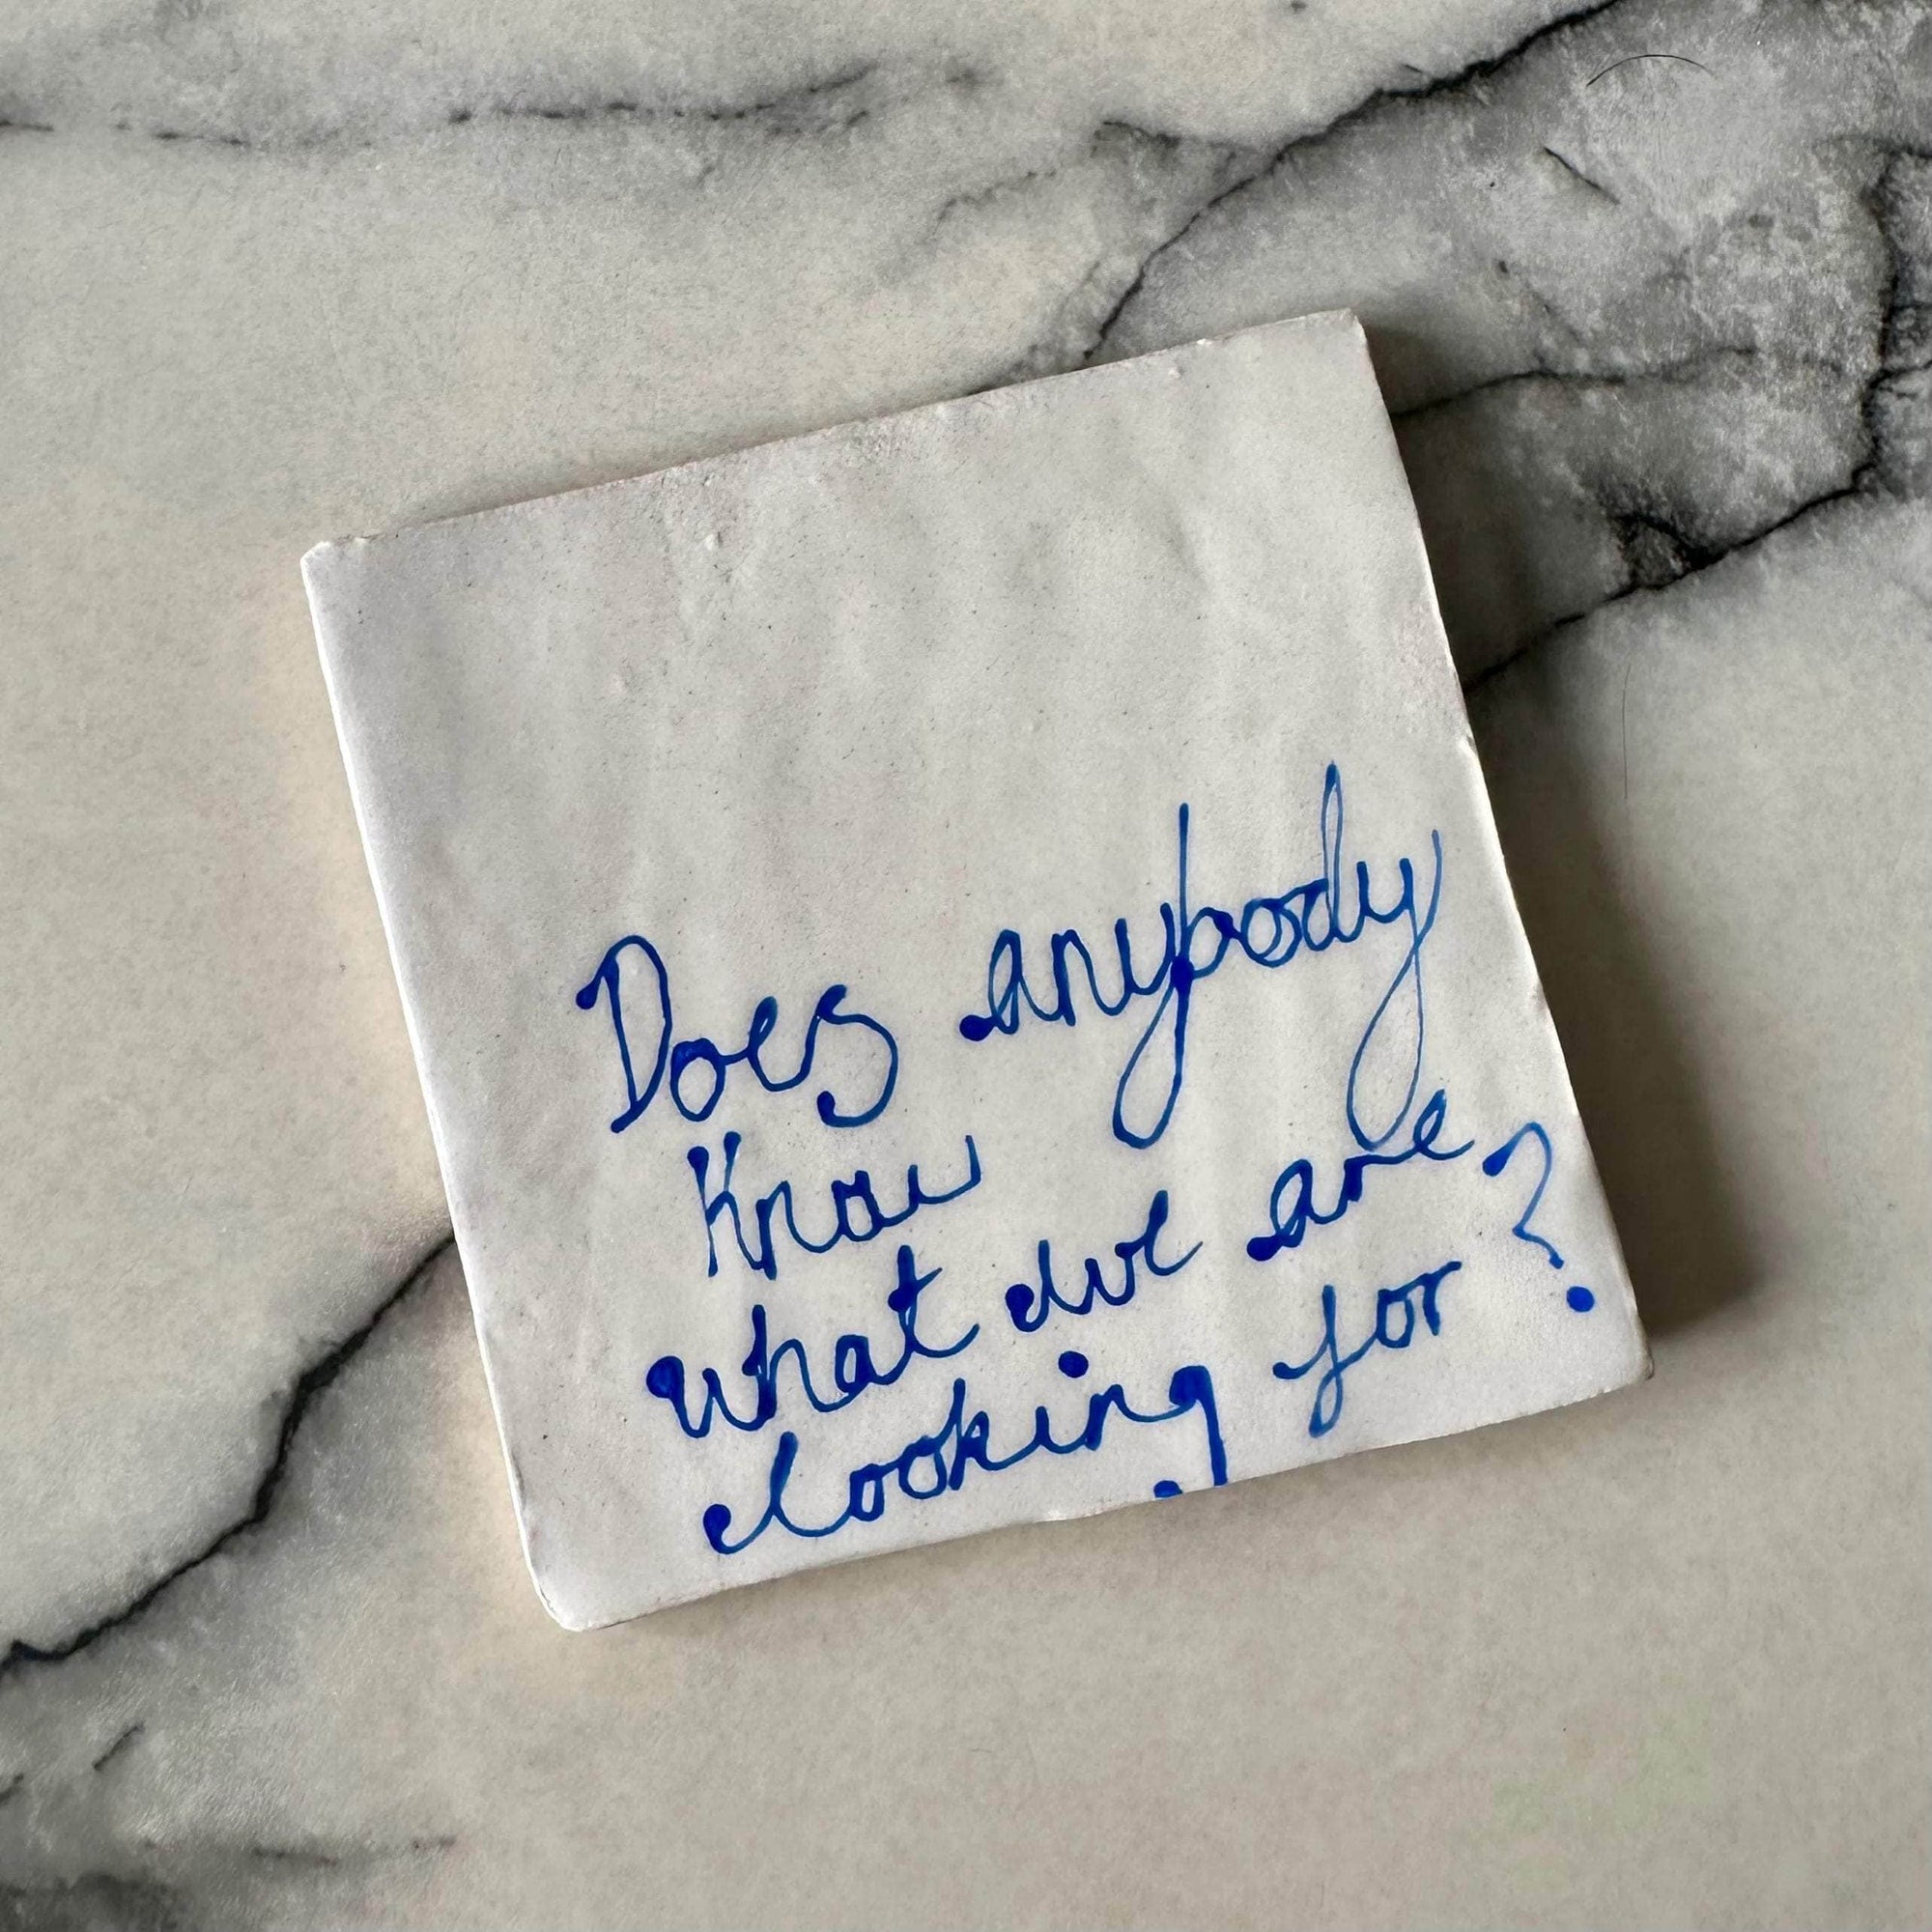 Does anybody
Know
what we are
looking for?